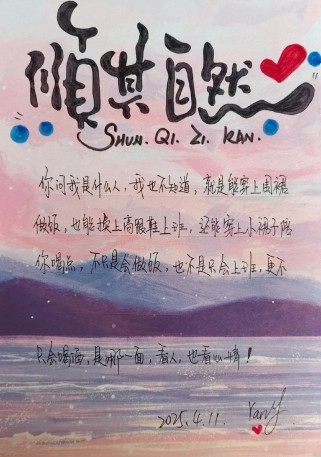 顺其自然
SHUN. QI. ZI. RAN.
你问我是什么人，我也不知道，就是能穿上围裙
做饭，也能换上高跟鞋上班，还能穿上小裙子陪
你喝点，不只是会做饭，也不是只会上班，更不
只会喝酒，是哪一面，看人，也看心情！
2025.4.11.